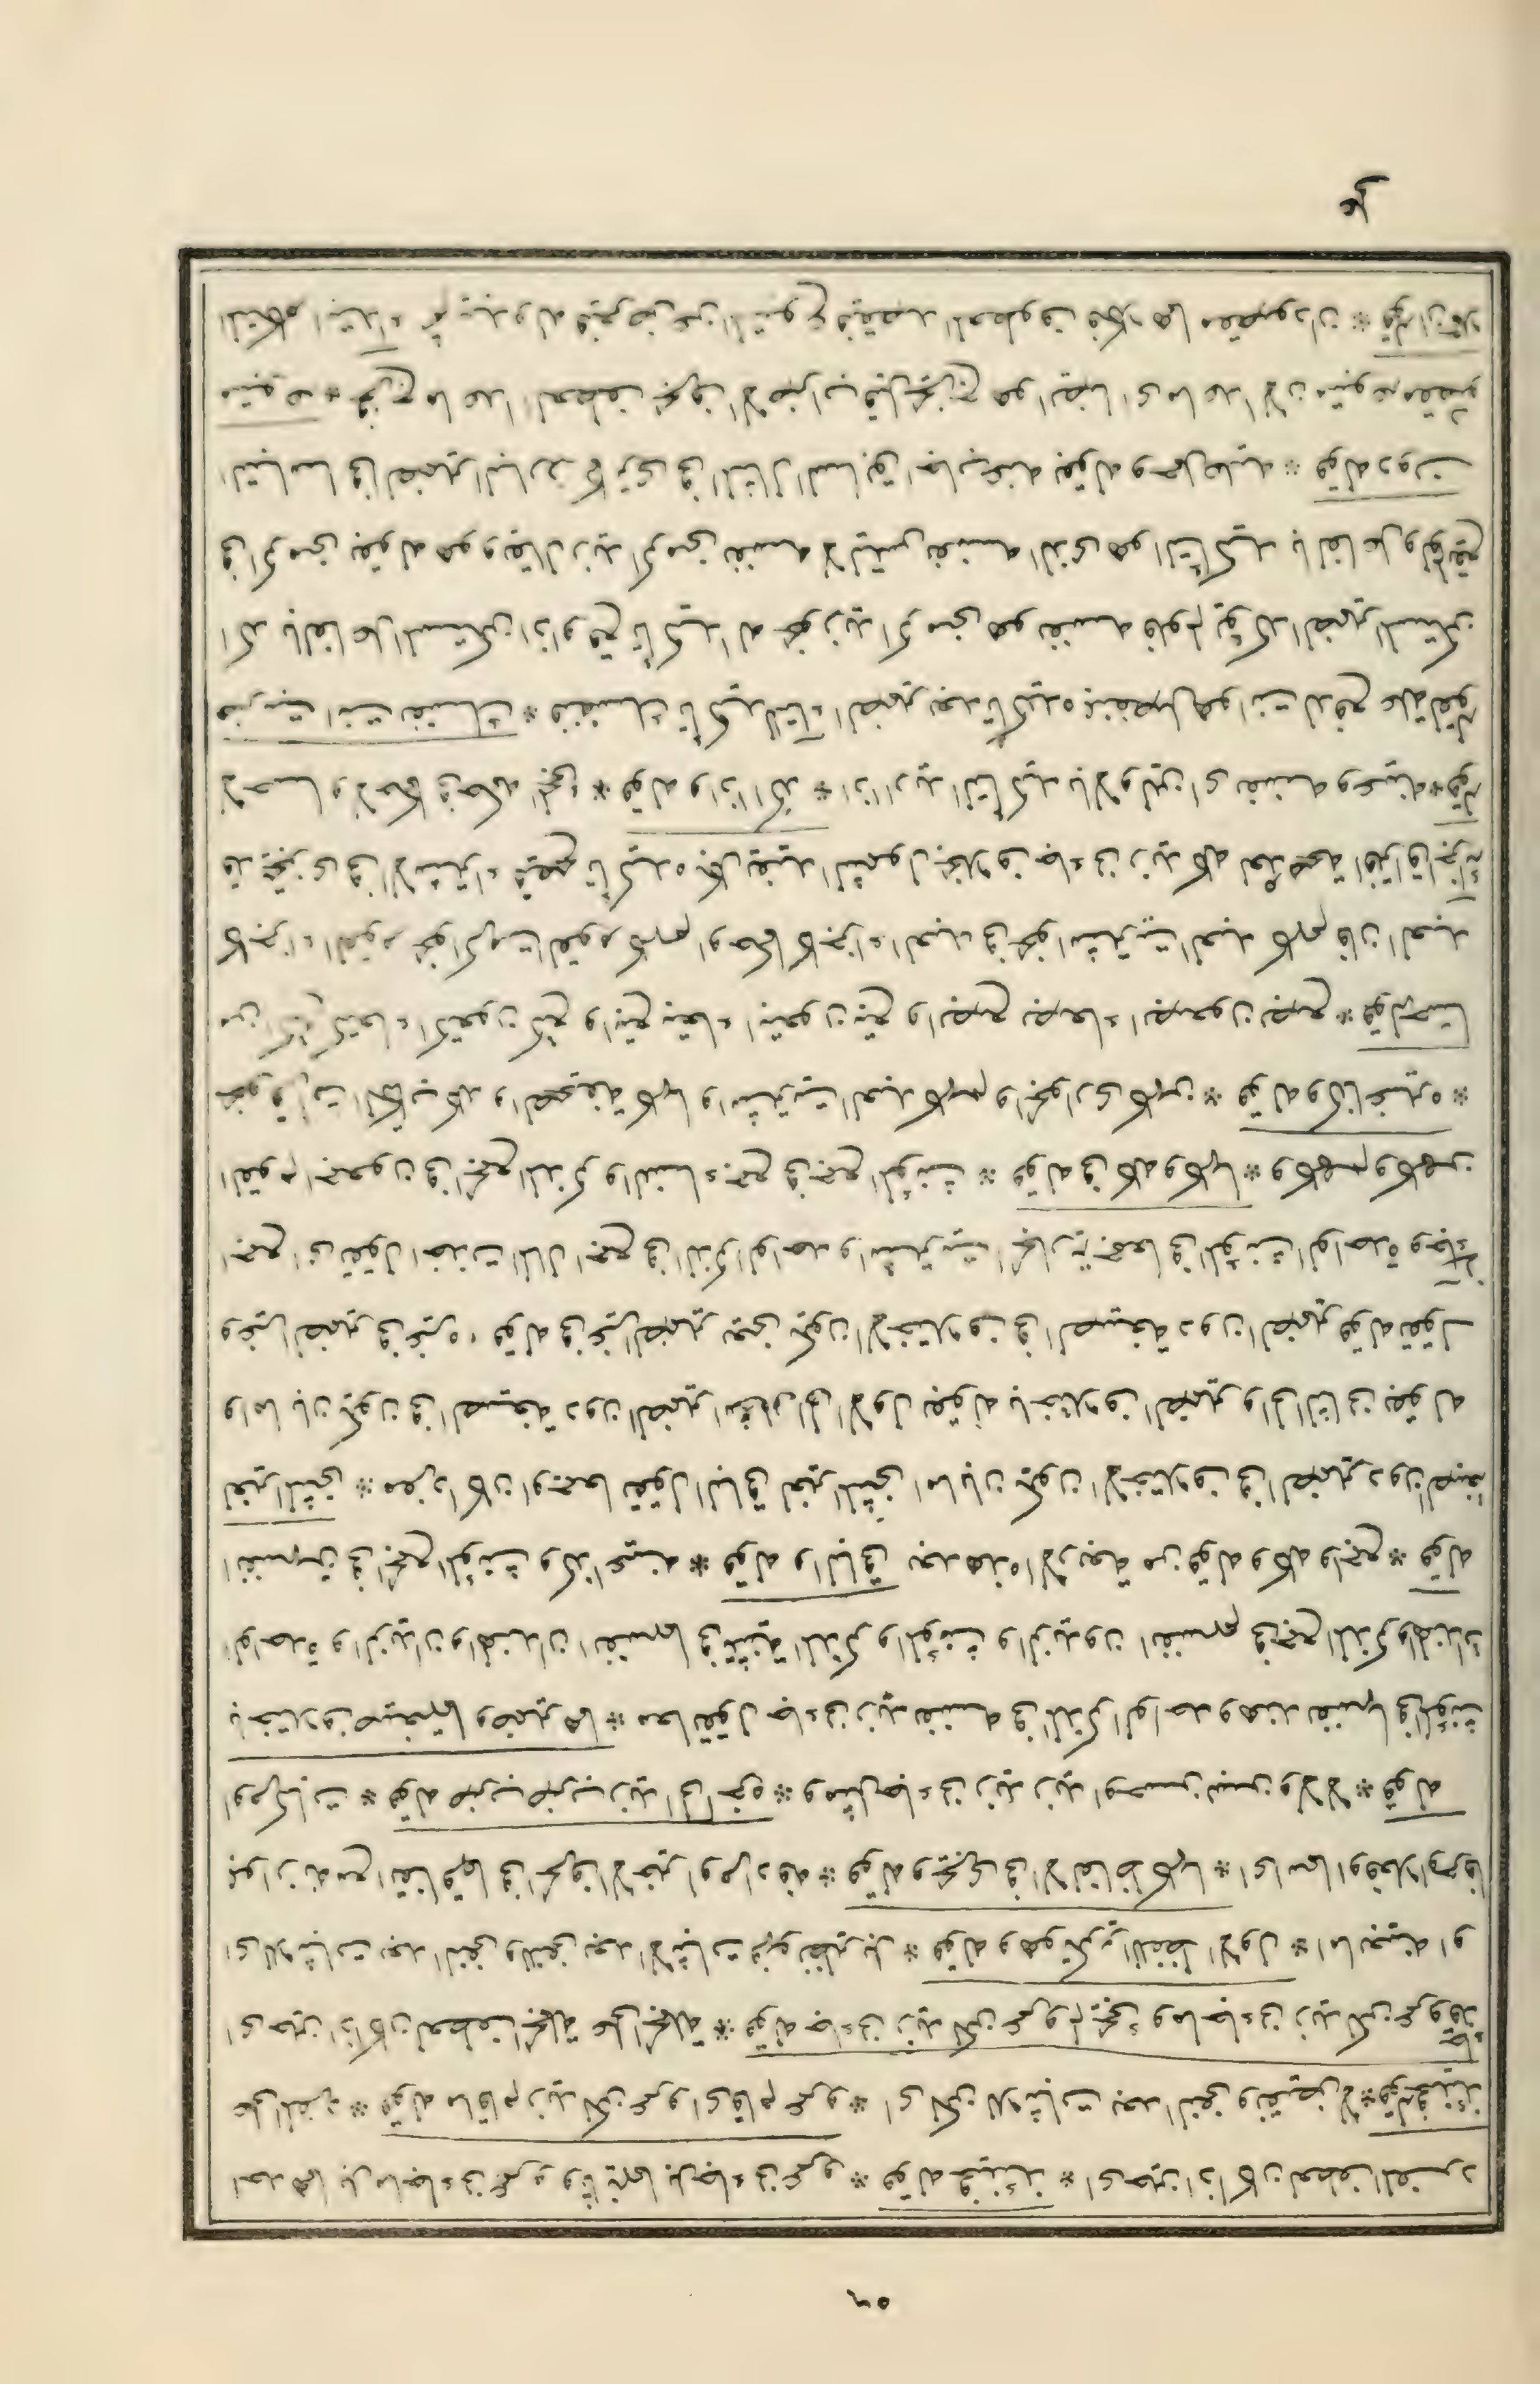 احدهما بل ما جاءنى عمرو وثانيهما بل جاءنى عمرو * قوله فحينئذ * اى حين اذ كان لعطف المفرد
على المفرد * قوله ما قام زيد لكن عمرو اى قام عمرو * اى لكن للاثبات بعد النفى ونقيض لا * قوله فحينئذ
اى حين اذ كان لعطف الجملة على الجملة * قوله جاءنى زيد لكن عمرو لم يجئ وما جاءنى زيد لكن عمرو قد جاء
اى للاثبات بعد النفى والنفى بعد الاثبات فهو نظير بل * قوله وهو تكرير اللفظ الاول * اما بعينه او
بموازنه مع اتفاقهما فى الحرف الاخير او مرادفه * قوله ويجرى فى الالفاظ كلها * اى اسما او فعلا او حرفا
او مركبات * قوله ضرب ضرب زيد الى اخره * ومثل جاءنى زيد زيد او حسن بسن ولا لا * قوله
باختلاف صيغتهما وضميرهما * معا تقول جاءنى زيد نفسه فى المذكر الواحد وهند نفسها فى المؤنث
الواحدة والزيدان والهندان انفسهما فى تثنية المذكر والمؤنث والزيدون انفسهم فى جمع المذكر والهندات
انفسهن فى جمع المؤنث وكذا عينه * قوله والباقى بعد هذه الاربعة من قوله وكله واجمع * قوله
لغير المثنى * مفردا كان او جمعا تقول الباقى لغير المثنى اما بان يكون الاختلاف فى الضمير دون الصيغة
واما بان يكون فى الصيغة دون الضمير اشار الى الاول بقوله باختلاف الضمير والى الثانى بقوله
وغير الضمير فى غيره * قوله فى غير الضمير يعنى يكون الاختلاف فى الصيغة دون الضمير قوله تقول
اجمع اى تقول اخذت المال اجمع فى المذكر الواحد واشتريت الجارية جمعاء فى المؤنث الواحدة وجاءنى
القوم اجمعون فى جمع المذكر والنساء جمع فى جمع المؤنث * قوله فى كله وكلها * وكلهم وكلهن
نحو قرأت الكتاب كله والصحيفة كلها واشتريت العبيد كلهم والجوارى كلهن * قوله وكذا غيره *
من اكتع كتعاء اكتعون كتع وابتع بتعاء ابتعون بتع وابصع بصعاء ابصعون بصع * قوله حسا
كاجزاء القوم نحو اكرمت القوم كلهم او حكما كاجزاء العبد فى نحو اشتريت العبد كله فان العبد
قد يتجزى فى الاشتراء فيصح تأكيده بكل ليفيد الشمول بخلاف جاءنى زيد كله لعدم صحة افتراق اجزائه
لا حسا ولا حكما فى حكم المجئ * قوله واذا اكد * اذا اريد التأكيد بالاولين اى نفسه وعينه * قوله
ضربت انت نفسك * فنفسك تأكيد التاء الضمير بعد تأكيده بمنفصل هو انت
اكد بالفاعل المستكن اذا وقع تأكيدا له نحو زيد اكرمنى هو نفسه فلو لم يؤكد الضمير المستكن
فى اكرمنى بقوله هو ويقال زيد اكرمنى نفسه لالتبس نفسه الذى هو التأكيد بالفاعل
الالتباس فى الضمير البارز كما ترى فى المثال السابق اجاب عنه بقوله وحمل عليه * قوله دون
متبوعه * يخرج ما عدا العطف هو ايضا اى ما عدا لان متبوعه مقصود
الحكم ابتداء ثم بدا له فاعرض عن المتبوع وقصد المعطوف فكلاهما مقصودان * قوله